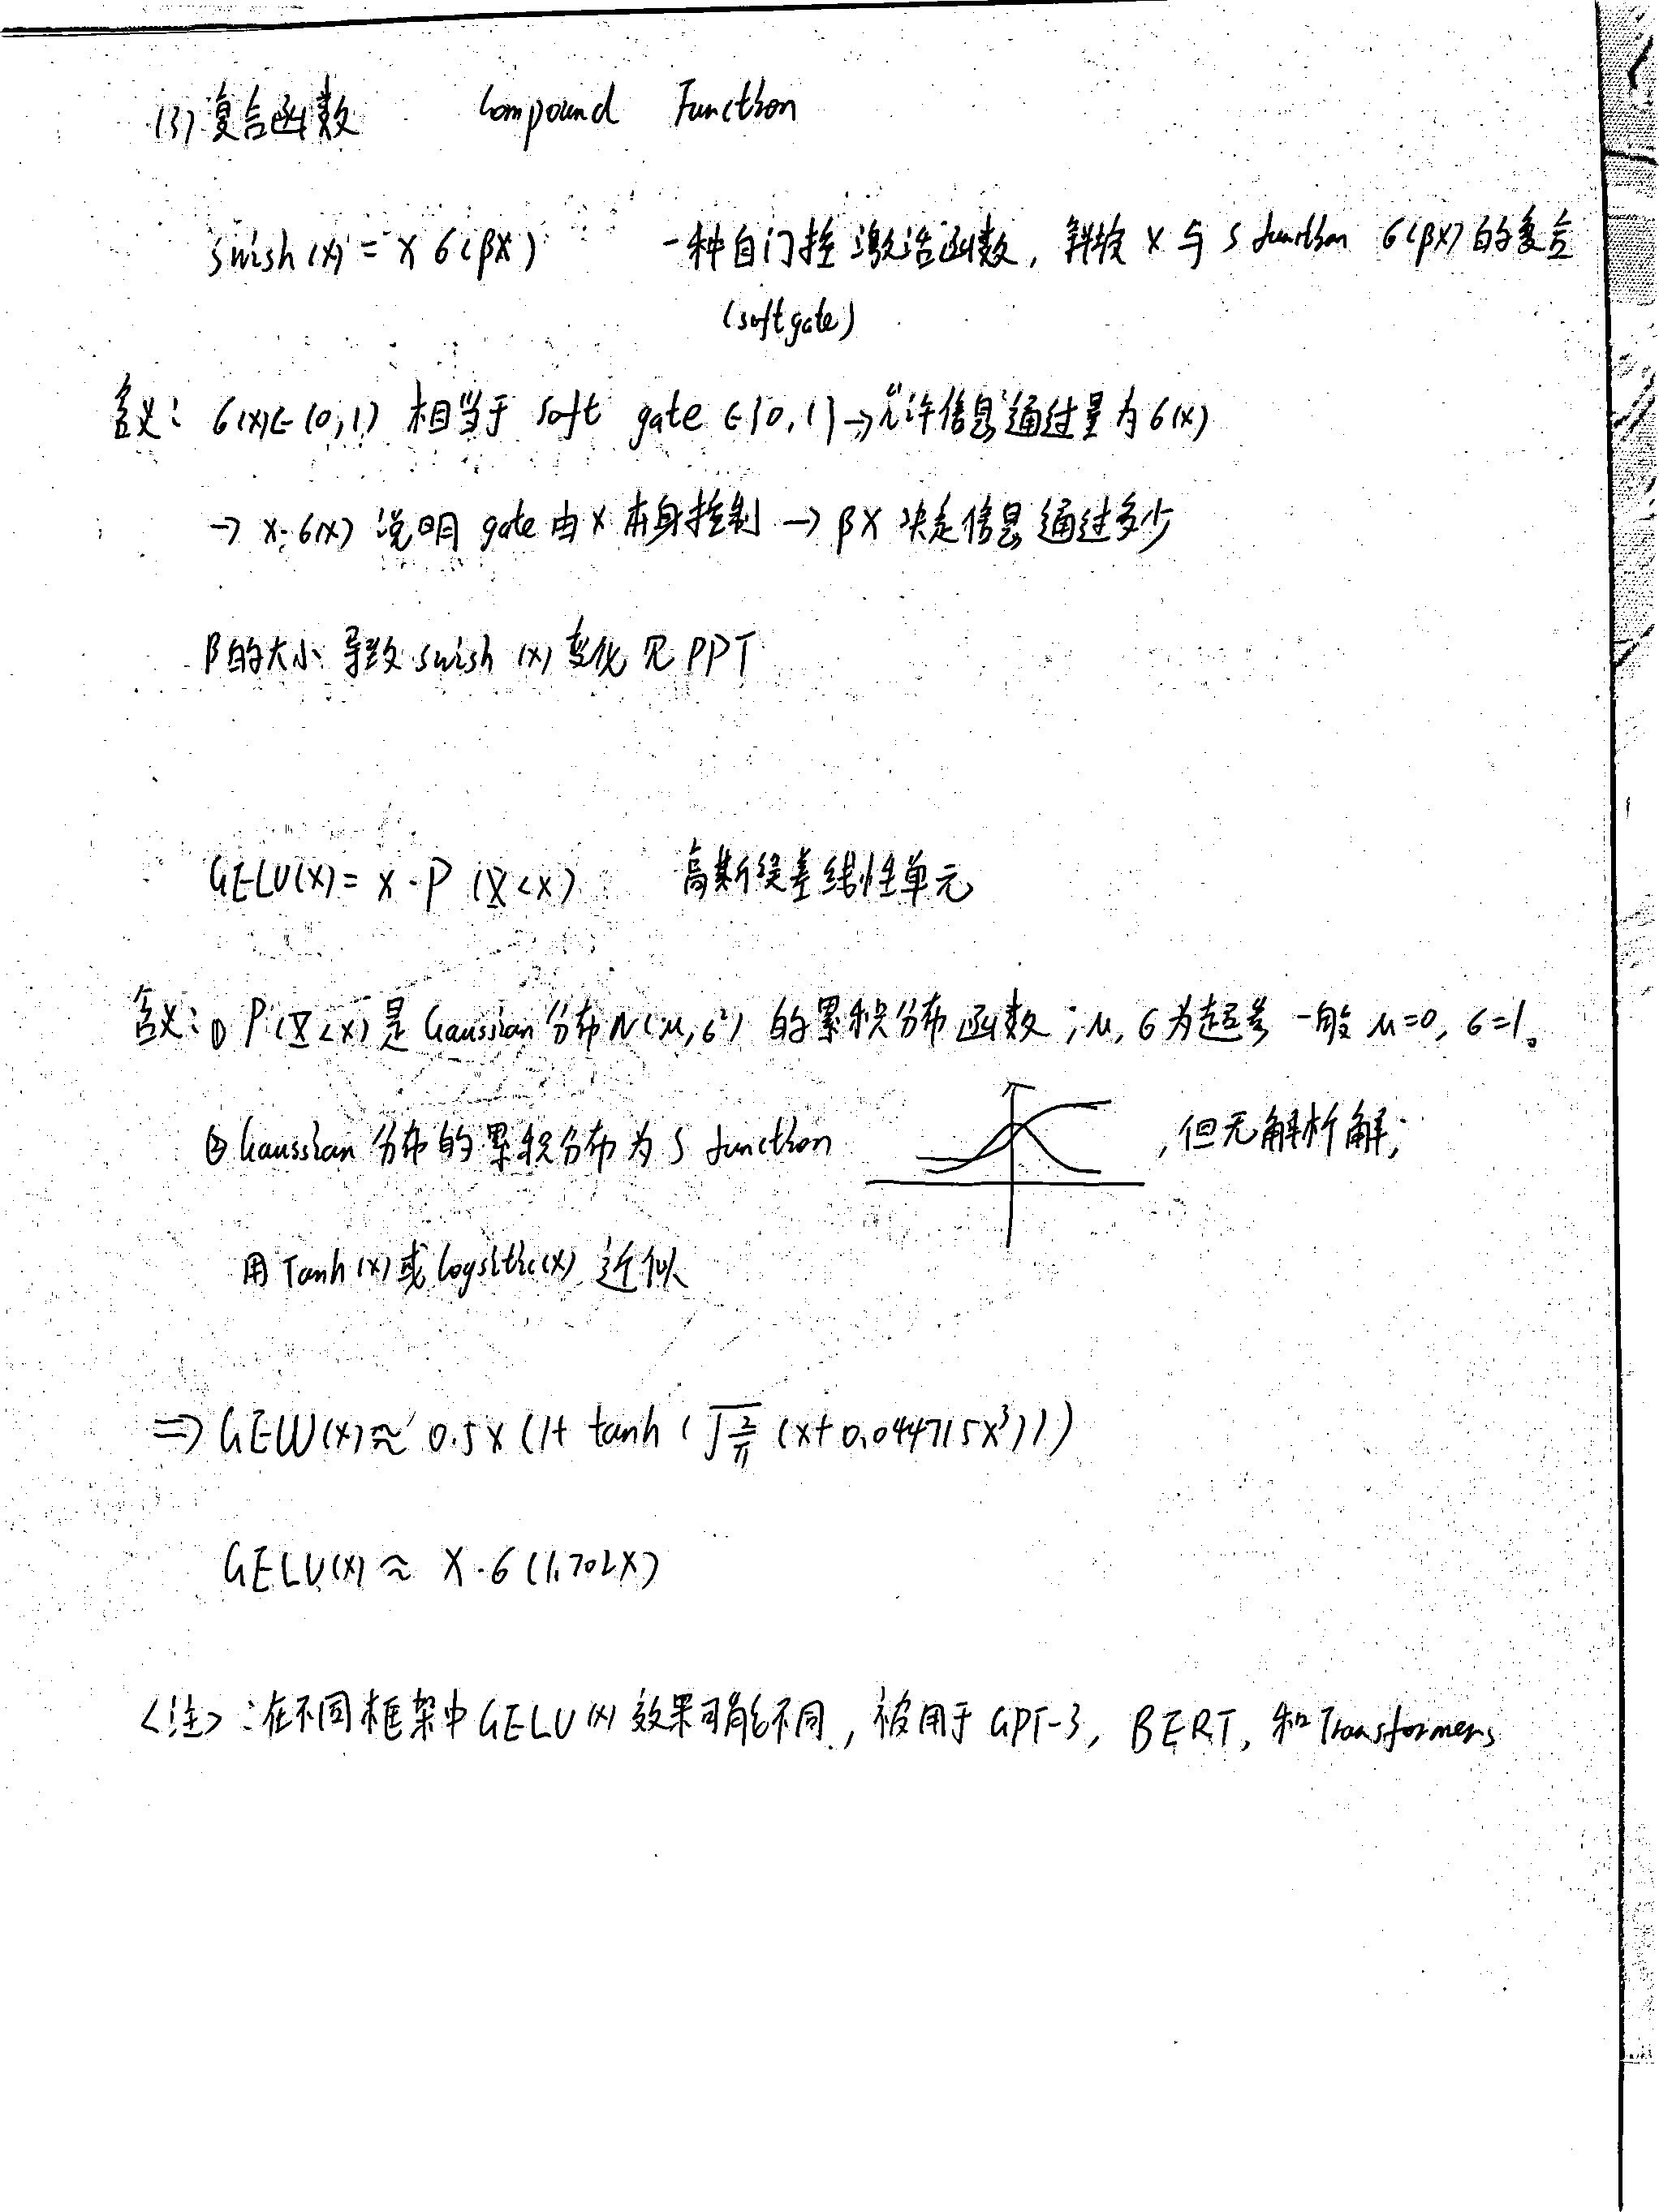 (3) 复合函数 Compound Function
swish(x) = x σ(βx) 一种自门控激活函数, 斜坡 x 与 S function σ(βx) 的复合
(soft gate)
含义: σ(x)∈(0,1) 相当于 soft gate ∈(0,1) → "允许信息"通过量为 σ(x)
→ x·σ(x) 说明 gate 由 x 本身控制 → βx 决定信息通过多少
β的大小导致 swish(x) 变化见 PPT
GELU(x) = x·P(X<x) 高斯误差线性单元
含义: ① P(X<x) 是 Gaussian 分布 N(μ,σ²) 的累积分布函数; μ, σ为超参 一般 μ=0, σ=1。
② Gaussian 分布的累积分布为 S function , 但无解析解;
用 Tanh(x) 或 Logsitic(x) 近似
⇒ GELU(x) ≈ 0.5x(1+ tanh(√(2/π) (x+0.044715x³)))
GELU(x) ≈ x·σ(1.702x)
<注>: 在不同框架中 GELU(x) 效果可能不同, 被用于 GPT-3, BERT, 和 Transformers